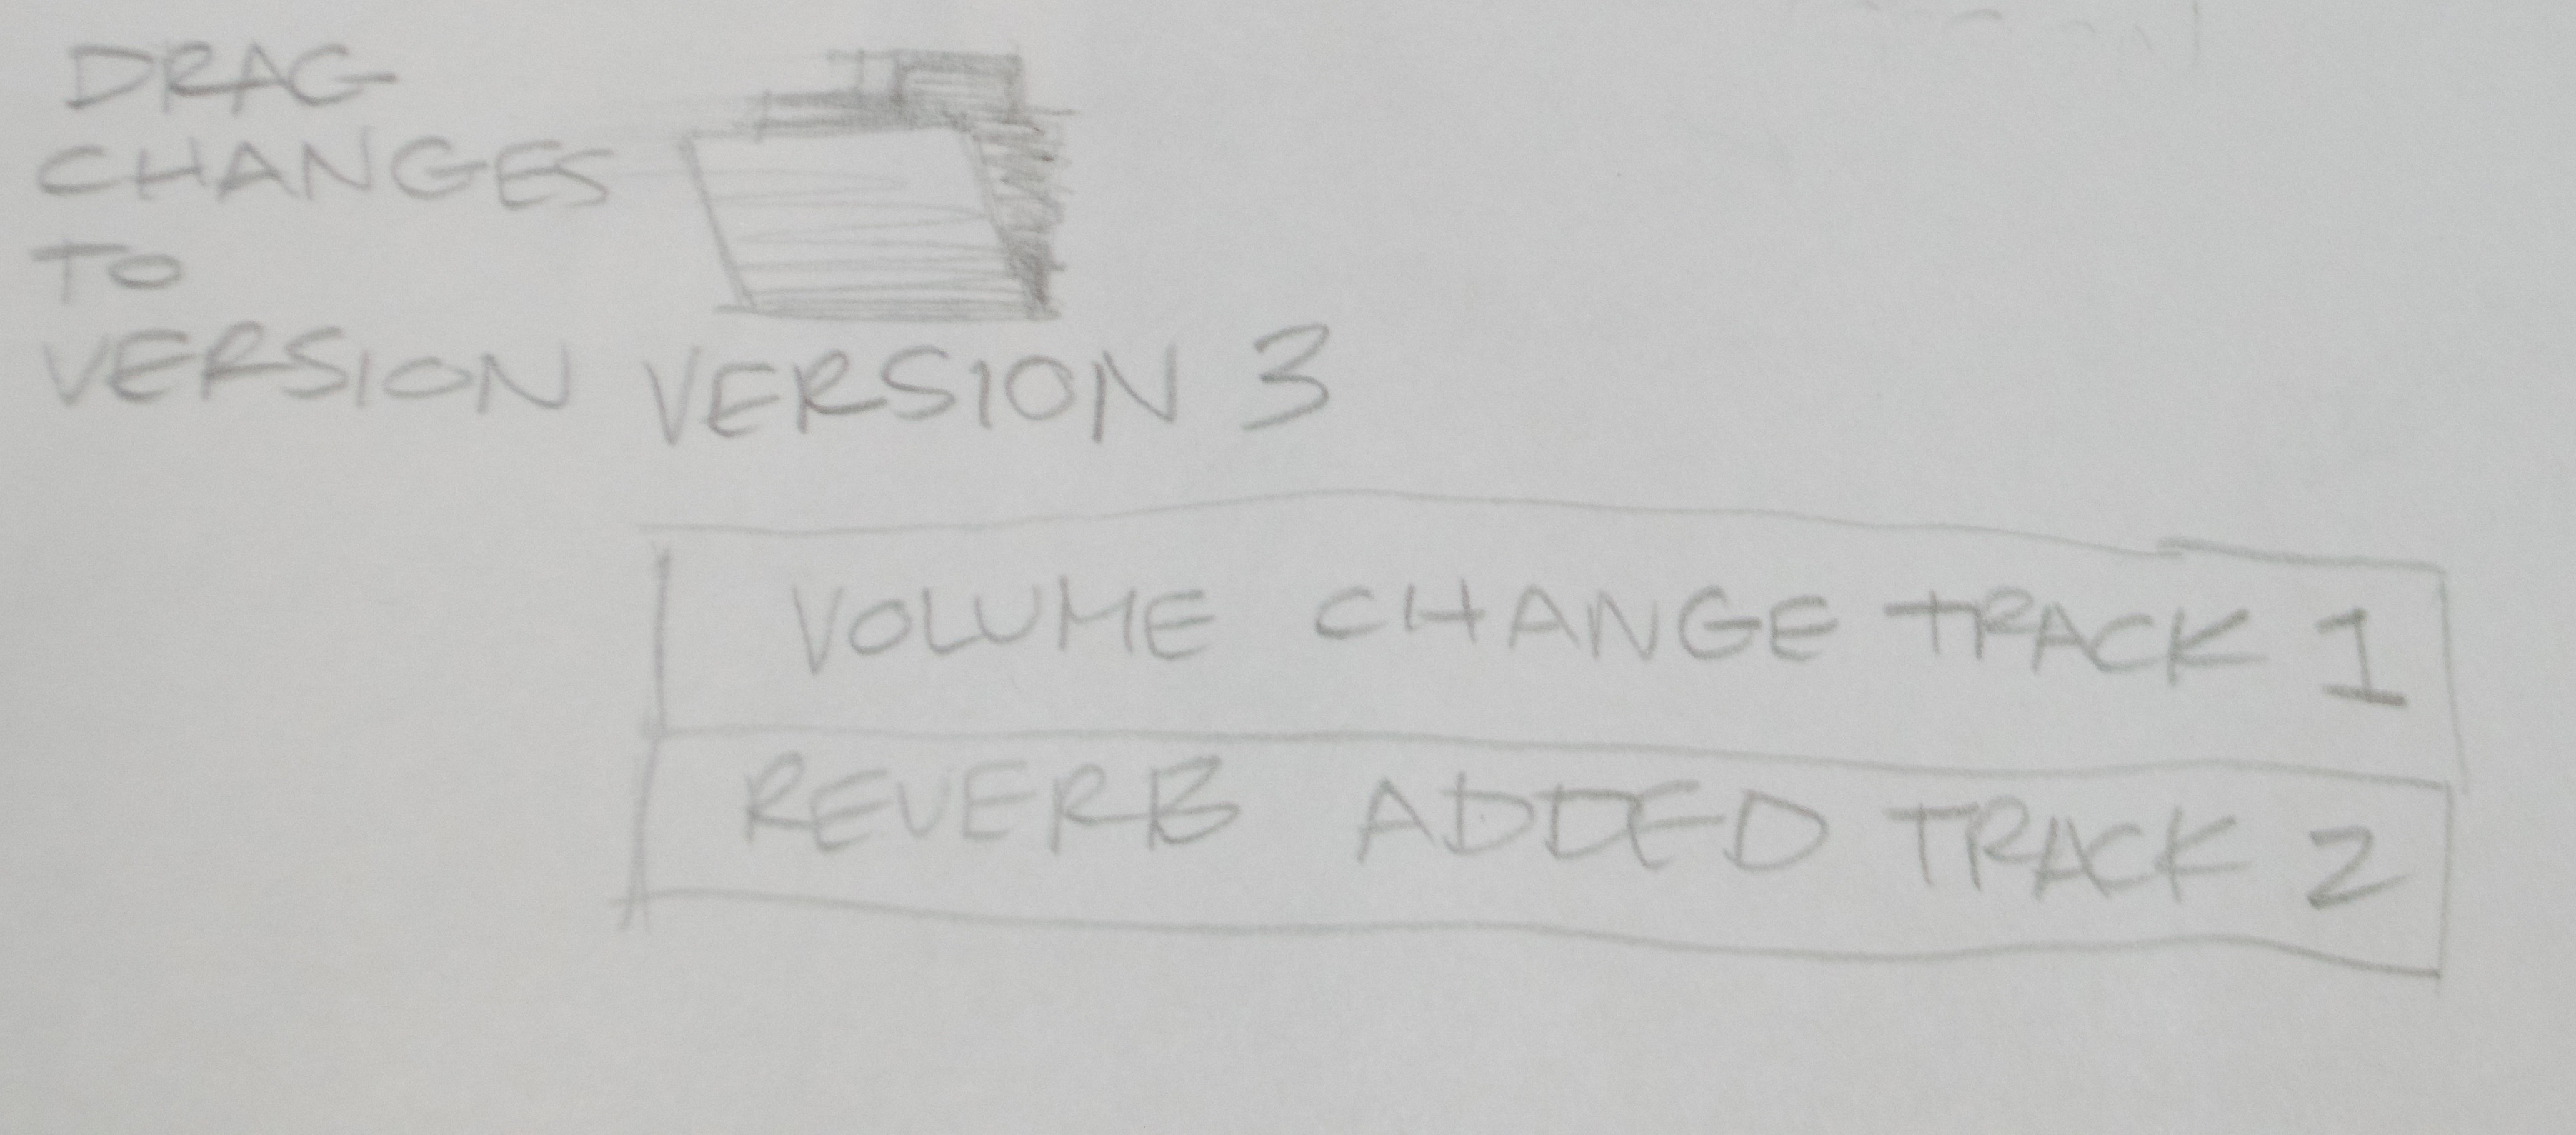 DRAG
CHANGES
TO
VERSION
VERSION 3
VOLUME CHANGE TRACK 1
REVERB ADDED TRACK 2